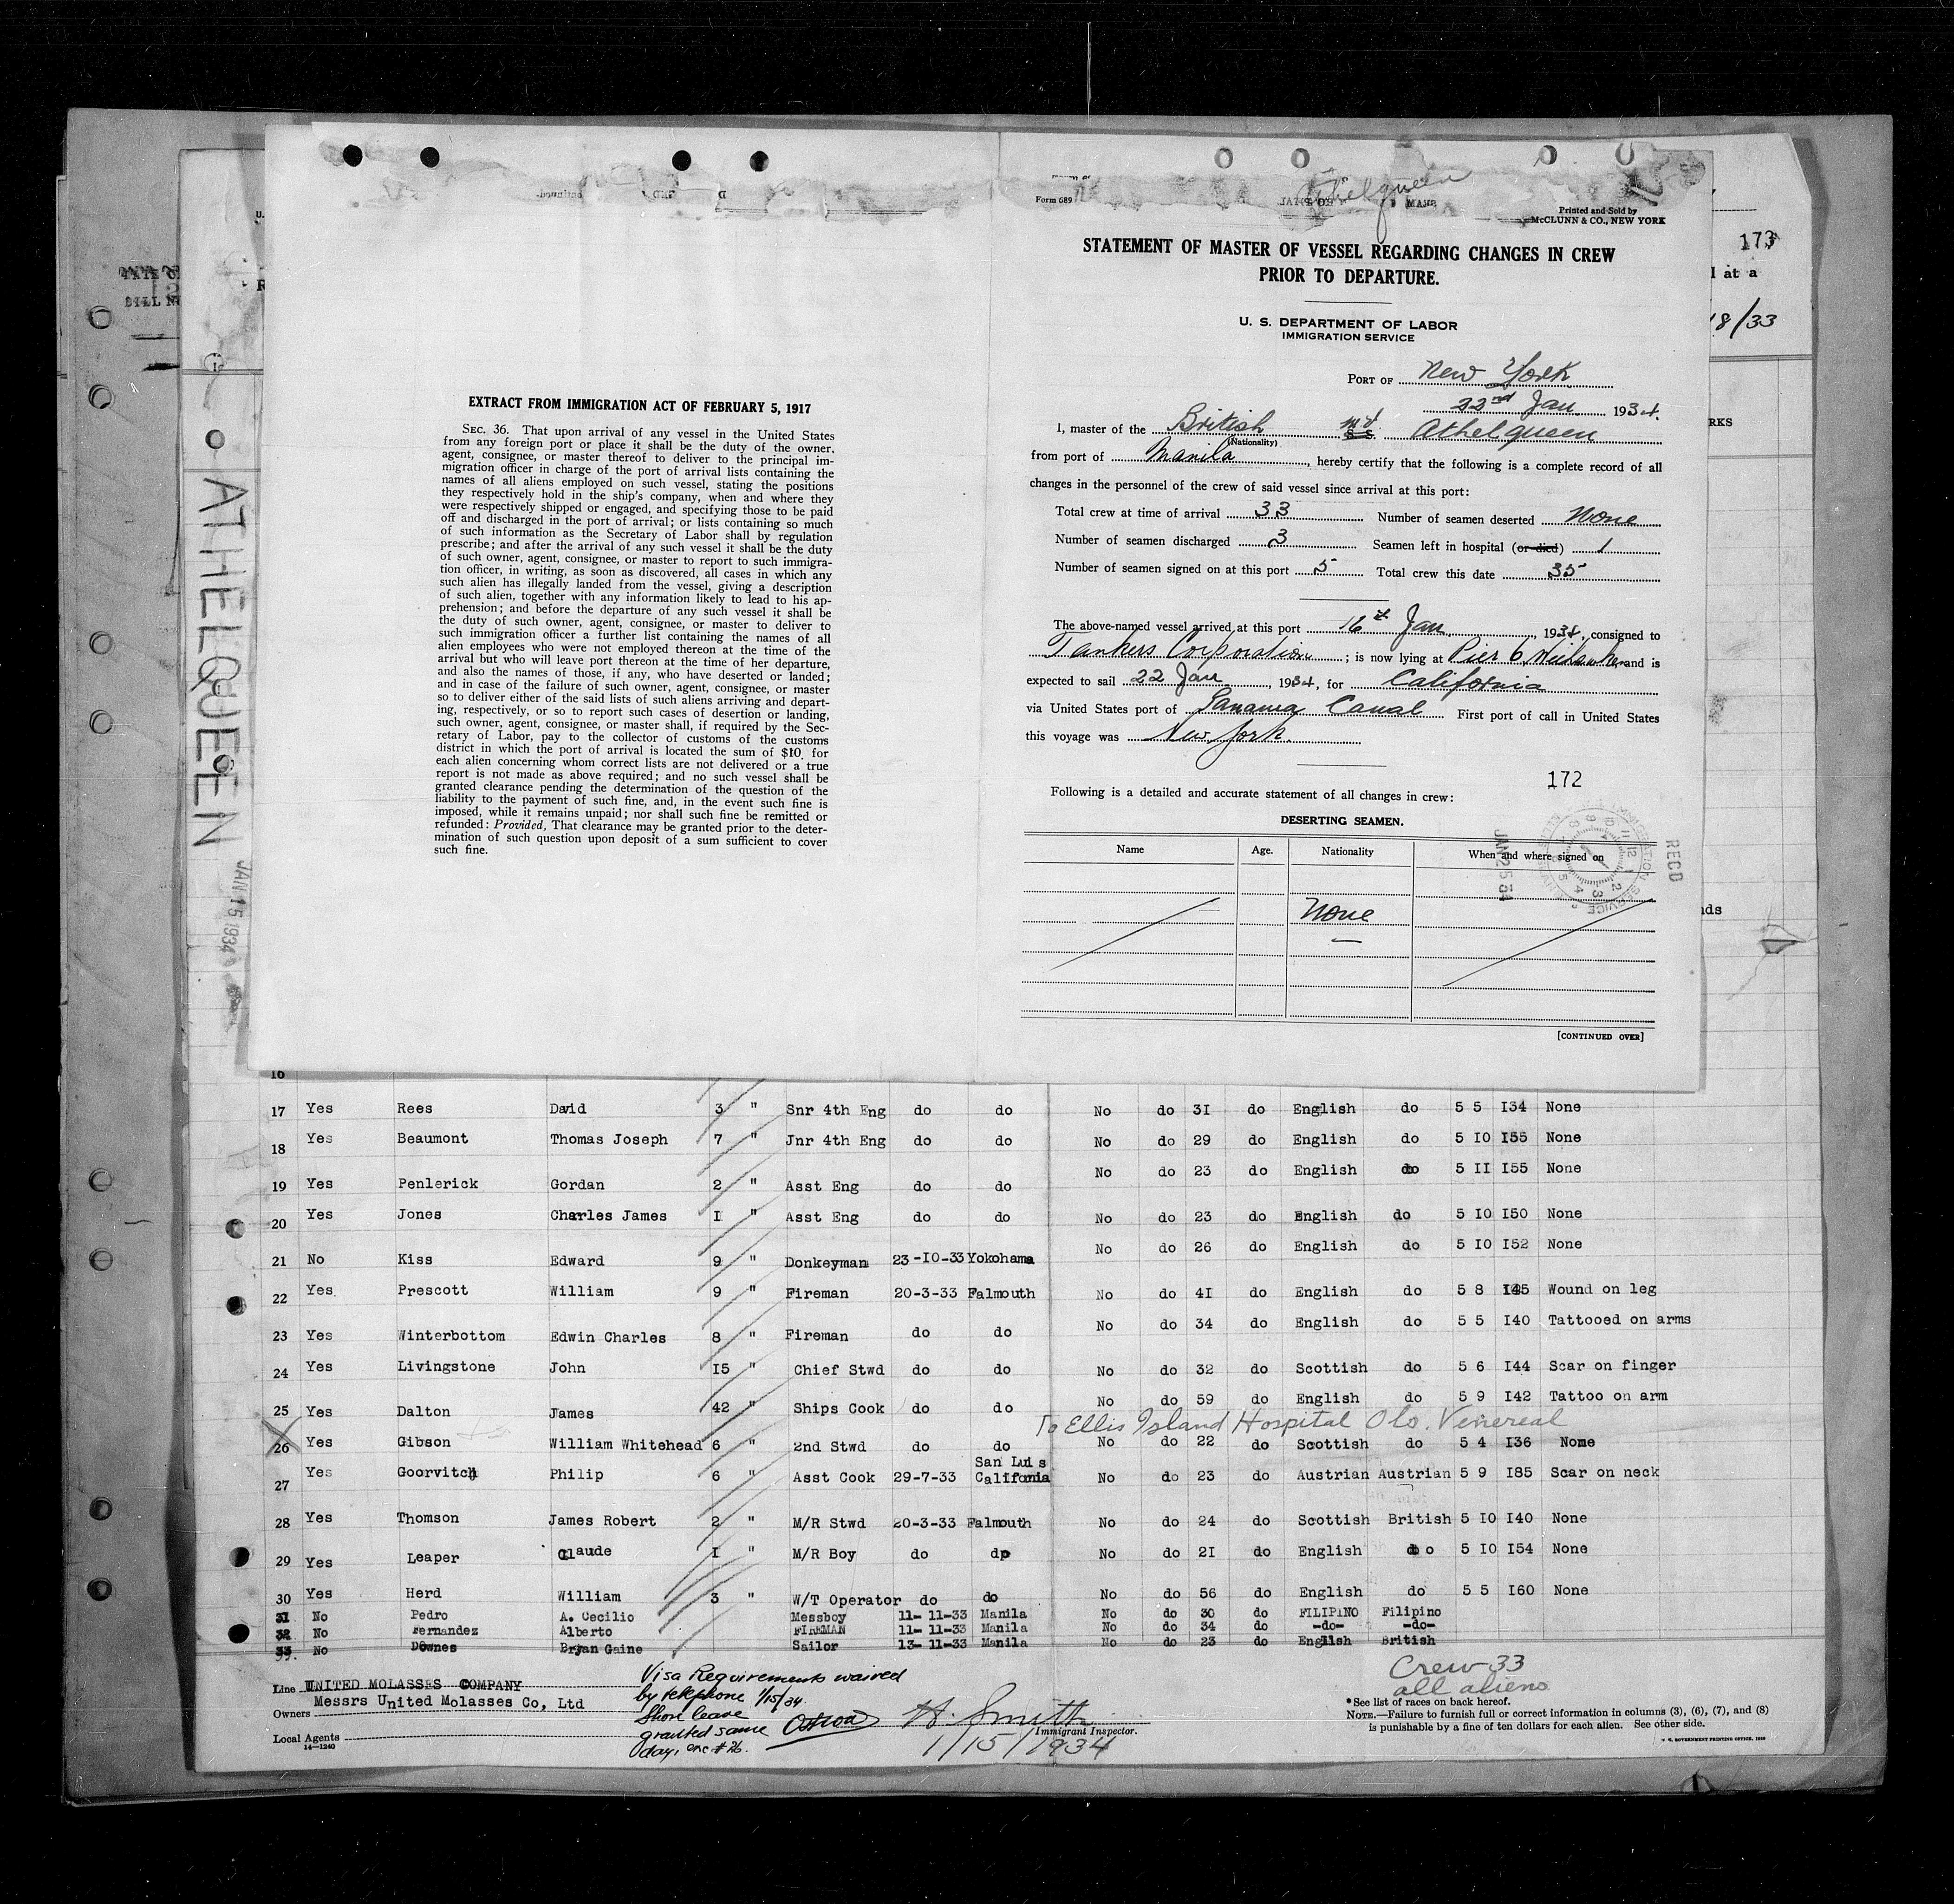 ATHELQUEEN
JAN 15 1934
EXTRACT FROM IMMIGRATION ACT OF FEBRUARY 5, 1917
SEC. 36. That upon arrival of any vessel in the United States
from any foreign port or place it shall be the duty of the owner,
agent, consignee, or master thereof to deliver to the principal im-
migration officer in charge of the port of arrival lists containing the
names of all aliens employed on such vessel, stating the positions
they respectively hold in the ship's company, when and where they
were respectively shipped or engaged, and specifying those to be paid
off and discharged in the port of arrival; or lists containing so much
of such information as the Secretary of Labor shall by regulation
prescribe; and after the arrival of any such vessel it shall be the duty
of such owner, agent, consignee, or master to report to such immigra-
tion officer, in writing, as soon as discovered, all cases in which any
such alien has illegally landed from the vessel, giving a description
of such alien, together with any information likely to lead to his ap-
prehension; and before the departure of any such vessel it shall be
the duty of such owner, agent, consignee, or master to deliver to
such immigration officer a further list containing the names of all
alien employees who were not employed thereon at the time of the
arrival but who will leave port thereon at the time of her departure,
and also the names of those, if any, who have deserted or landed;
and in case of the failure of such owner, agent, consignee, or master
so to deliver either of the said lists of such aliens arriving and depart-
ing, respectively, or so to report such cases of desertion or landing,
such owner, agent, consignee, or master shall, if required by the Sec-
retary of Labor, pay to the collector of customs of the customs
district in which the port of arrival is located the sum of $10 for
each alien concerning whom correct lists are not delivered or a true
report is not made as above required; and no such vessel shall be
granted clearance pending the determination of the question of the
liability to the payment of such fine, and, in the event such fine is
imposed, while it remains unpaid; nor shall such fine be remitted or
refunded: Provided, That clearance may be granted prior to the deter-
mination of such question upon deposit of a sum sufficient to cover
such fine.
Form 689
Athelqueen
Printed and Sold by
McCLUNN & CO., NEW YORK
173
l at a
18/33
RKS
STATEMENT OF MASTER OF VESSEL REGARDING CHANGES IN CREW
PRIOR TO DEPARTURE.
U. S. DEPARTMENT OF LABOR
IMMIGRATION SERVICE
PORT OF New York
22nd Jan 1934.
I, master of the British (Nationality) S.S. Athelqueen
from port of Manila, hereby certify that the following is a complete record of all
changes in the personnel of the crew of said vessel since arrival at this port:
Total crew at time of arrival 33 Number of seamen deserted None
Number of seamen discharged 3 Seamen left in hospital (or died) 1
Number of seamen signed on at this port 5 Total crew this date 35
The above-named vessel arrived at this port 16th Jan, 1934, consigned to
Tankers Corporation; is now lying at Pier 6 and is
expected to sail 22 Jan, 1934, for California
via United States port of Panama Canal First port of call in United States
this voyage was New York.
172
Following is a detailed and accurate statement of all changes in crew:
DESERTING SEAMEN.
Name Age. Nationality When and where signed on
None
RECD
JAN 25 34
[CONTINUED OVER]
ds
16
17 Yes Rees David 3 " Snr 4th Eng do do No do 31 do English do 5 5 134 None
18 Yes Beaumont Thomas Joseph 7 " Jnr 4th Eng do do No do 29 do English do 5 10 155 None
19 Yes Penlerick Gordan 2 " Asst Eng do do No do 23 do English do 5 11 155 None
20 Yes Jones Charles James 1 " Asst Eng do do No do 23 do English do 5 10 150 None
21 No Kiss Edward 9 " Donkeyman 23-10-33 Yokohama No do 26 do English do 5 10 152 None
22 Yes Prescott William 9 " Fireman 20-3-33 Falmouth No do 41 do English do 5 8 145 Wound on leg
23 Yes Winterbottom Edwin Charles 8 " Fireman do do No do 34 do English do 5 5 140 Tattooed on arms
24 Yes Livingstone John 15 " Chief Stwd do do No do 32 do Scottish do 5 6 144 Scar on finger
25 Yes Dalton James 42 " Ships Cook do do No do 59 do English do 5 9 142 Tattoo on arm
To Ellis Island Hospital O/c. Venereal
26 Yes Gibson William Whitehead 6 " 2nd Stwd do do No do 22 do Scottish do 5 4 136 None
27 Yes Goorvitch Philip 6 " Asst Cook 29-7-33 San Luis California No do 23 do Austrian Austrian 5 9 185 Scar on neck
28 Yes Thomson James Robert 2 " M/R Stwd 20-3-33 Falmouth No do 24 do Scottish British 5 10 140 None
29 Yes Leaper Claude 1 " M/R Boy do do No do 21 do English do 5 10 154 None
30 Yes Herd William 3 " W/T Operator do do No do 56 do English do 5 5 160 None
31 No Pedro A. Cecilio Messboy 11-11-33 Manila No do 30 do FILIPINO Filipino
32 No Fernandez Alberto FIREMAN 11-11-33 Manila No do 34 do -do- -do-
33 No Downes Bryan Gaine Sailor 13-11-33 Manila No do 23 do English British
Line UNITED MOLASSES COMPANY
Owners Messrs United Molasses Co, Ltd
Local Agents
14-1240
Visa Requirements waived
by telephone 1/15/34.
Shore leave
granted same
day, exc #26.
H. Smith
Immigrant Inspector.
1/15/1934
Crew 33
all aliens
*See list of races on back hereof.
NOTE.—Failure to furnish full or correct information in columns (3), (6), (7), and (8)
is punishable by a fine of ten dollars for each alien. See other side.
U. S. GOVERNMENT PRINTING OFFICE